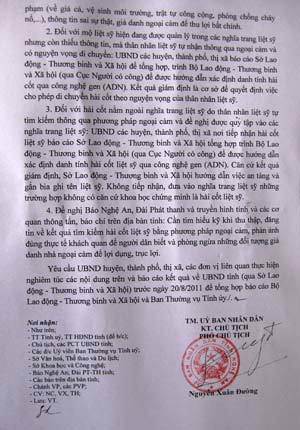 phạm (về giá cả, vệ sinh môi trường, trật tự công cộng, phòng chống cháy
nổ,...), thông tin sai sự thật, giả danh ngoại cảm để thu lợi bất chính.
2. Đối với mộ liệt sỹ hiện đang được quản lý trong các nghĩa trang liệt sỹ
nhưng còn thiếu thông tin, mà thân nhân liệt sỹ tự nhận thông qua ngoại cảm và
có nguyện vọng di chuyển: UBND các huyện, thành phố, thị xã báo cáo Sở Lao
động - Thương binh và Xã hội để tổng hợp, trình Bộ Lao động - Thương binh
và Xã hội (qua Cục Người có công) để được hướng dẫn xác định danh tính hài
cốt qua công nghệ gen (ADN). Kết quả giám định là cơ sở để quyết định việc
cho phép di chuyển hài cốt theo nguyện vọng của thân nhân liệt sỹ.
3. Đối với hài cốt nằm ngoài nghĩa trang liệt sỹ do thân nhân liệt sỹ tự
tìm kiếm thông qua phương pháp ngoại cảm và đề nghị được quy tập vào các
nghĩa trang liệt sỹ: UBND các huyện, thành phố, thị xã nơi tiếp nhận hài cốt
liệt sỹ báo cáo Sở Lao động - Thương binh và Xã hội tổng hợp trình Bộ Lao
động - Thương binh và Xã hội (qua Cục Người có công) để được hướng dẫn
xác định danh tính hài cốt liệt sỹ qua công nghệ gen (ADN). Căn cứ kết quả
giám định, Sở Lao động - Thương binh và Xã hội hướng dẫn việc an táng và
gắn bia ghi tên liệt sỹ. Không tiếp nhận, đưa vào nghĩa trang liệt sỹ những
trường hợp không có căn cứ khoa học chứng minh là hài cốt liệt sỹ.
4. Đề nghị Báo Nghệ An, Đài Phát thanh và truyền hình tỉnh và các cơ
quan thông tấn, báo chí trên địa bàn tỉnh: Cần tìm hiểu kỹ khi thu thập, đăng
tin về kết quả tìm kiếm hài cốt liệt sỹ bằng phương pháp ngoại cảm, phản ánh
đúng thực tế khách quan để người dân biết và phòng ngừa những đối tượng giả
danh nhà ngoại cảm để lợi dụng, trục lợi.
Yêu cầu UBND huyện, thành phố, thị xã, các đơn vị liên quan thực hiện
nghiêm túc các nội dung trên và báo cáo kết quả về UBND tỉnh (qua Sở Lao
động - Thương binh và Xã hội) trước ngày 20/8/2011 để tổng hợp báo cáo Bộ
Lao động - Thương binh và Xã hội và Ban Thường vụ Tỉnh ủy./.
Nơi nhận:
- Như trên;
- TT Tỉnh ủy, TT HĐND tỉnh (để b/c);
- Chủ tịch, các PCT UBND tỉnh;
- Các đ/c Uỷ viên Ban Thường vụ Tỉnh uỷ;
- Sở Văn hoá, Thể thao và Du lịch;
- Sở Khoa học và Công nghệ;
- Báo Nghệ An, Đài PT-TH tỉnh;
- Các báo trên địa bàn tỉnh;
- Chánh VP, các PVP;
- CV: NC, VX, TH;
- Lưu: VT.
TM. UỶ BAN NHÂN DÂN
KT. CHỦ TỊCH
PHÓ CHỦ TỊCH
Nguyễn Xuân Đường